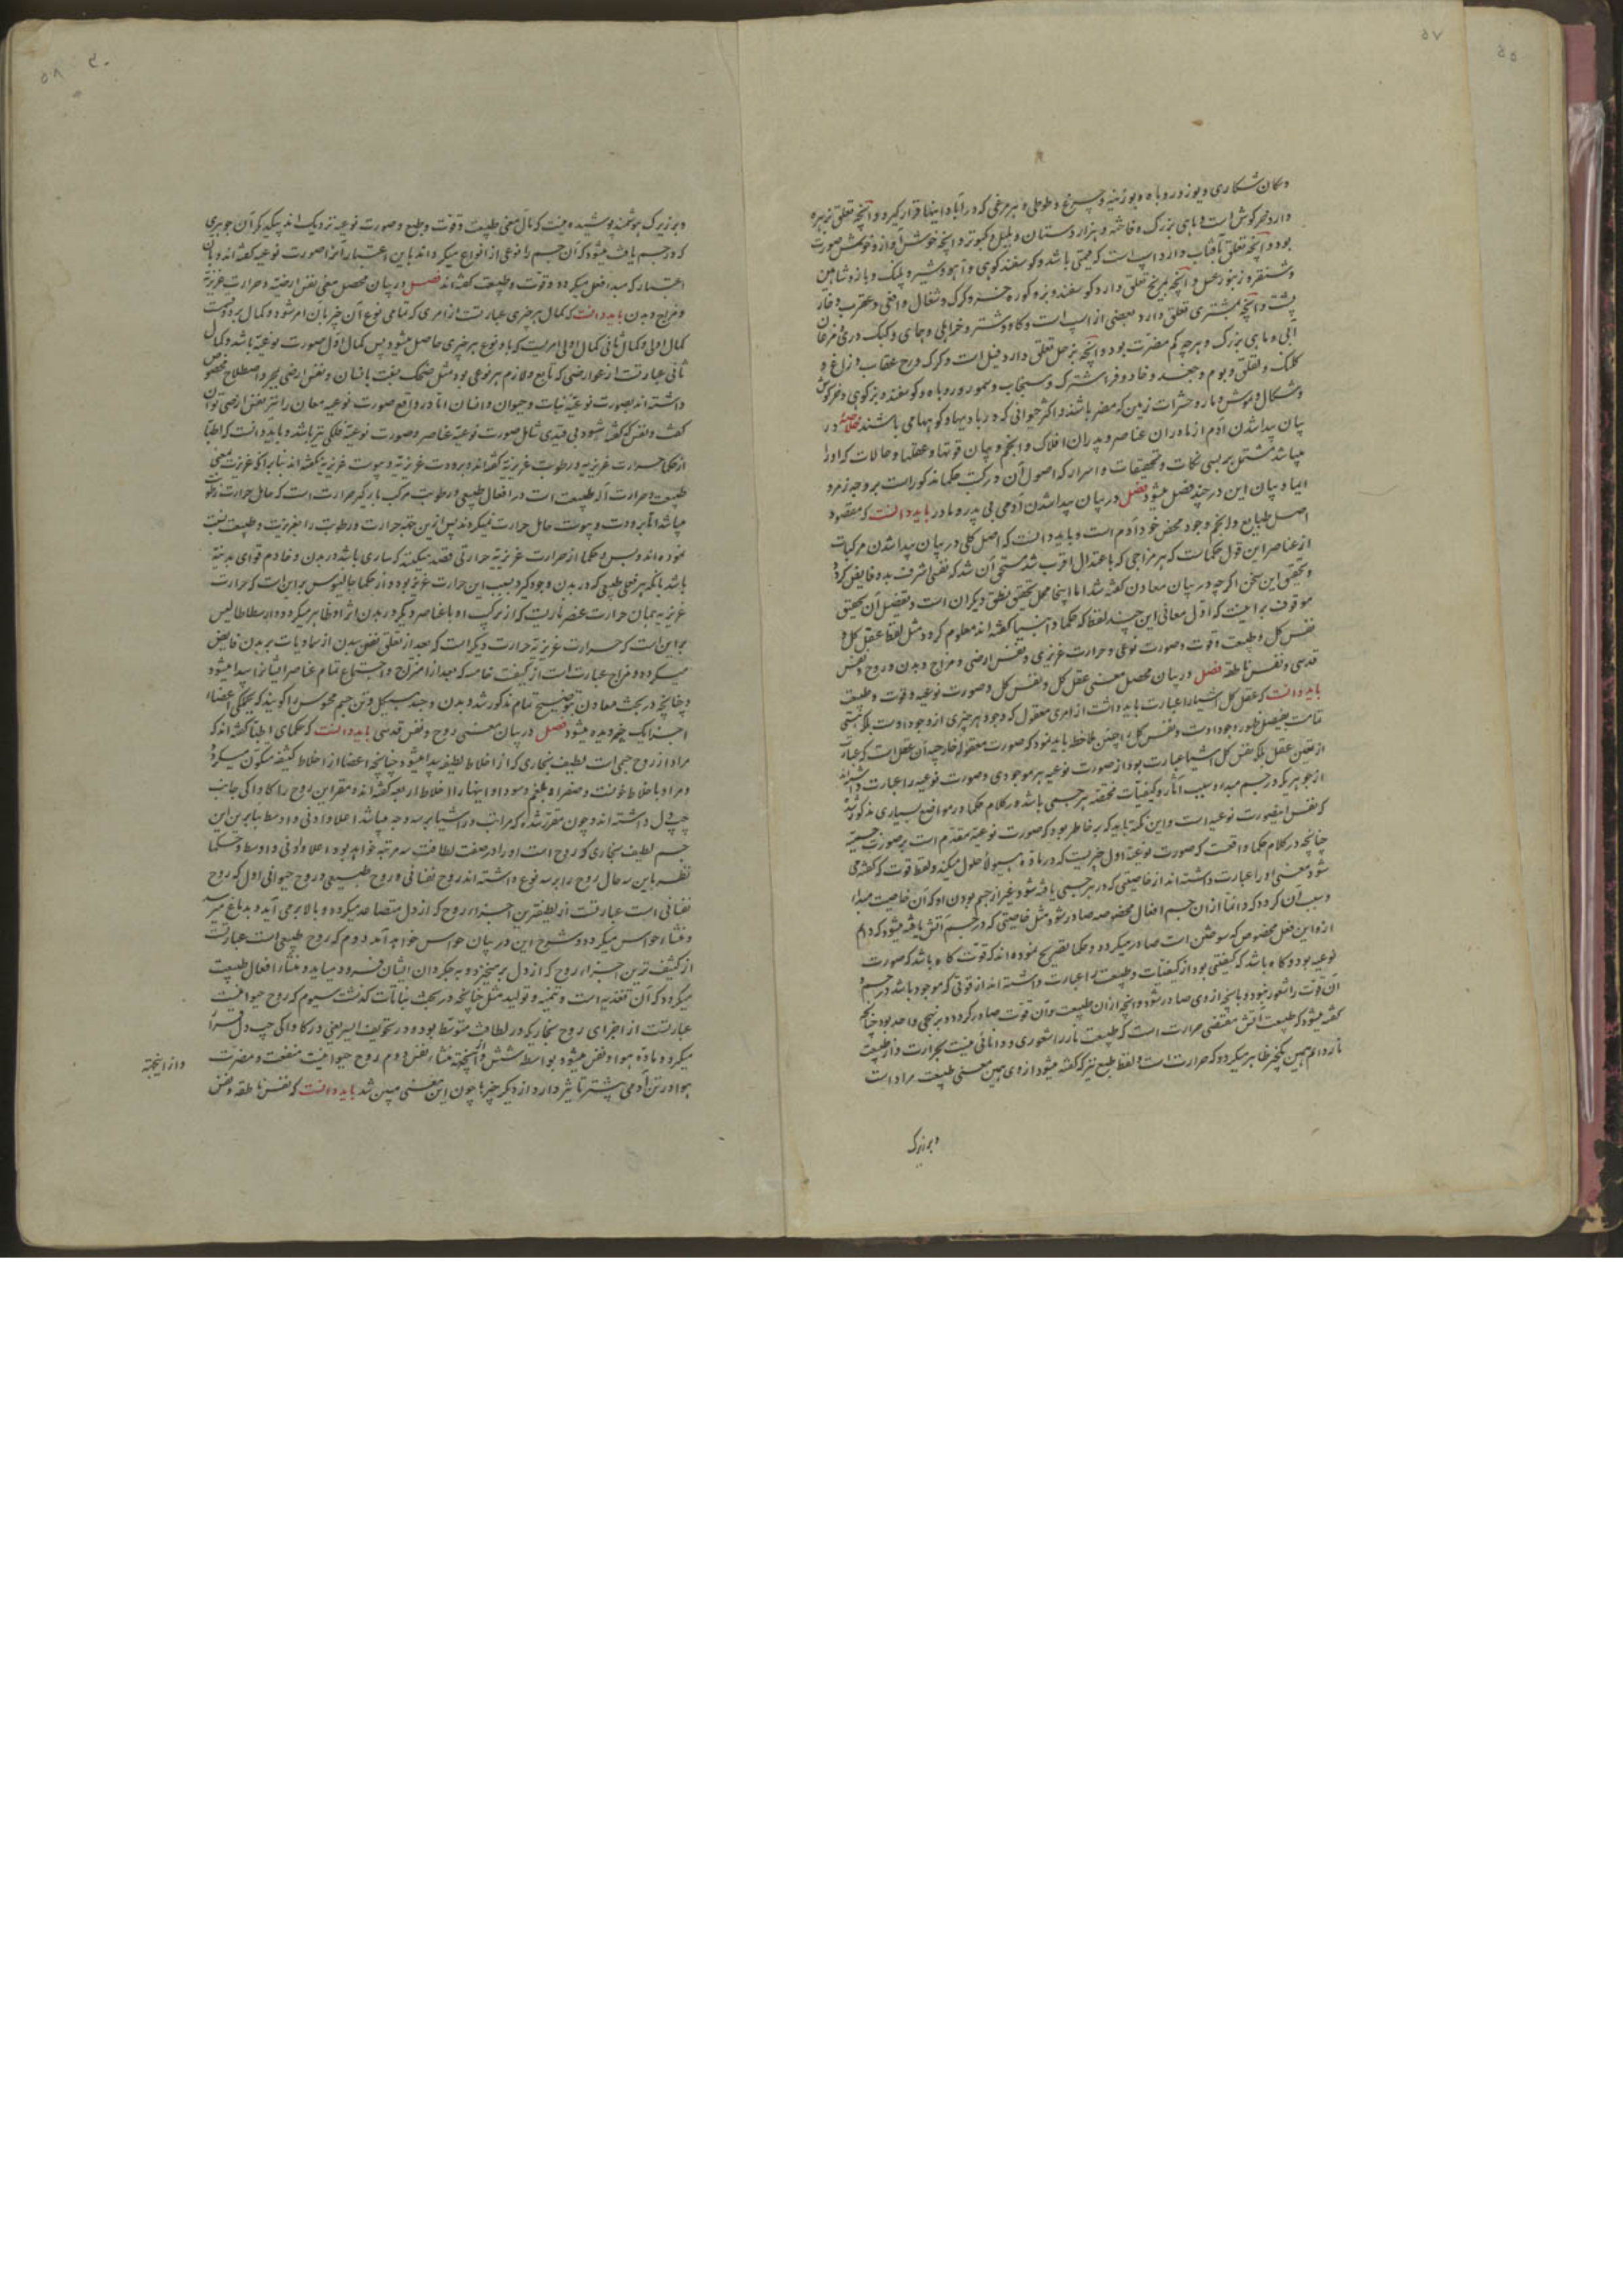 ۵۵
۵۷
و سگان شکاری و یوز و روباه و بوزینه و چرغ و طوطی و هر مرغی که در آباد اینها قرار گیرد و آنچه تعلق بزهره
دارد خرگوش است و ماهی بزرگ و فاخته و هزار دستان و بلبل و کبوتر و آنچه خوش آواز و خوش صورت
بود و آنچه تعلق بآفتاب دارد اسپ است که قیمتی باشد و گوسفند کوهی و آهو و شیر و پلنگ و باز و شاهین
و سنقر و زنبور عسل و آنچه بمریخ تعلق دارد گوسفند و بز و گوره خر و گرگ و شغال و افعی و عقرب و خار
پشت و آنچه بمشتری تعلق دارد بعضی از اسپ است و گاو و شتر و خر اهلی و همای و کبک دری و مرغان
آبی و ماهی بزرگ و هرچه کم مضرت بود و آنچه بزحل تعلق دارد فیل است و کرگ و عقاب و زاغ و
کلنگ و لقلق و بوم و جغد و خاد و سنجاب و سمور و روباه و گوسفند و بز کوهی و خرگوش
و شکال و موش و مار و حشرات زمین که مضر باشند و اکثر حیوانی که در بادیها و کوهها می باشند خلاصه در
بیان پیدا شدن آدم از مادران عناصر و پدران افلاک و انجم و بیان قوتها و عقلها و حالات که او را
میباشد مشتمل بر بسی نکات و تحقیقات و اسرار که اصول آن در کتب حکما مذکور است بر وجه رمز و
ایما و بیان این در چند فصل میشود فصل در بیان پیدا شدن آدمی بی پدر و مادر باید دانست که مقصود
اصل طبایع و انجم وجود محض خود آدم است و باید دانست که اصل کلی در بیان پیدا شدن مرکبات
از عناصر این قول حکماست که هر مزاجی که باعتدال اقرب شد مستحق آن شد که نفس اشرف بدو فایض گردد
و تحقیق این سخن اگرچه در بیان معادن گفته شد اما اینجا محل تحقیق نطق دیگران است و تفصیل آن تحقیق
موقوف بر اینست که اول معانی این چند لفظ که حکما و انبیا گفته اند معلوم گردد مثل لفظ عقل کل و
نفس کل و طبیعت و قوت و صورت نوعی و حرارت غریزی و نفس ارضی و مزاج و بدن و روح و نفس
قدسی و نفس ناطقه فصل در بیان محصل معنی عقل کل و نفس کل و صورت نوعیه و قوت و طبیعت
باید دانست که عقل کل اشیا را عبارت باید داشت از امری معقول که وجود هر چیزی از وجود اوست بلکه هستی
تمامت تفصیل ظهور وجود اوست و نفس کل را چنین ملاحظه باید نمود که صورت معقوله خارجیه آن عقل است که عبارت
از تعین عقل بلکه نفس کل اشیا عبارت بود از صورت نوعیه هر موجودی و صورت نوعیه را عبارت داشته اند
از جوهریکه در جسم مبدء و سبب آثار و کیفیات مختصه هر جسمی باشد و در کلام حکما در مواضع بسیاری مذکور شد
که نفس اینصورت نوعیه است و این نکته باید که بر خاطر بود که صورت نوعیه مقدم است بر صورت جسمیه
چنانچه در کلام حکما واقعست که صورت نوعیه اول چیزیست که در ماده هیولا حلول میکند و لفظ قوت که گفته می
شود معنی او را عبارت داشته اند از خاصیتی که در هر جسمی یافته شود و غیر از جسم بودن او که آن خاصیت مبداء
و سبب آن گردد که دائما از ان جسم افعال مخصوصه صادر شود مثل خاصیتی که در جسم آتش یافته میشود که دایم
از و این فعل مخصوص که سوختن است صادر میگردد و حکما تصریح نموده اند که قوت گاه باشد که صورت
نوعیه بود و گاه باشد که کیفیتی بود از کیفیات و طبیعت را عبارت داشته اند از قوتی که موجود باشد در جسم و
آن قوت را شعور نبود و بآنچه از وی صادر شود و آنچه از آن طبیعت و آن قوت صادر گردد بر نهجی واحد بود چنانچه
گفته میشود که طبیعت آتش مقتضی حرارت است که طبیعت نار را شعوری و دانائی نیست بحرارت و از طبیعت
نار دائم همین یکچیز ظاهر میگردد که حرارتست و لفظ طبع نیز که گفته میشود از وی همین معنی طبیعت مراد است
و بر زیرک
۵۸
و بر زیرک هوشمند پوشیده نیست که مآل معنی طبیعت و قوت و طبع و صورت نوعیه نزدیک اند بیکدیگر که آن جوهری
که در جسم یافت میشود که آن جسم را نوعی از انواع میگرداند باین اعتبار آنرا صورت نوعیه گفته اند و بان
اعتبار که مبدء فعل میگردد قوت و طبیعت گفته اند فصل در بیان محصل معنی نفس ارضیه و حرارت غریزیه
و مزاج و بدن باید دانست که کمال هر چیزی عبارتست از امری که تمامی نوع آن چیز بان امر شود و کمال بر دو قسمست
کمال اولی و کمال ثانی کمال اولی امریست که باو نوع هر چیزی حاصل میشود پس کمال اول صورت نوعیه باشد و کمال
ثانی عبارتست از عوارضی که تابع و لازم هر نوعی بود مثل ضحک نسبت بانسان و نفس ارضی بمجرد اصطلاح مخصوص
داشته اند بصورت نوعیه نبات و حیوان و انسان اما در واقع صورت نوعیه معادن را نیز نفس ارضی توان
گفت و نفس که گفته شود بی قیدی شامل صورت نوعیه عناصر و صورت نوعیه فلکی نیز باشد و باید دانست که اطبا
از حکما حرارت غریزیه و رطوبت غریزیه گفته اند و برودت غریزیه و یبوست غریزیه نگفته اند بنابر آنکه غریزیت بمعنی
طبیعت و حرارت آله طبیعت است در افعال طبیعی و رطوبت مرکب بارگیر حرارت است که حامل حرارت رطوبت
میباشد اما برودت و یبوست حامل حرارت نمیگردند پس ازین جهة حرارت و رطوبت را بغریزیت و طبیعت نسبت
نموده اند و بس و حکما از حرارت غریزیه حرارتی قصد میکنند که ساری باشد در بدن و خادم قوای بدنیه
باشد بانکه هر فعلی طبیعی که در بدن وجود گیرد بسبب این حرارت غریزیه بود و از حکما جالینوس بر این است که حرارت
غریزیه همان حرارت عنصر ناریست که از ترکیب او با عناصر دیگر در بدن اثر او ظاهر میگردد و ارسطاطالیس
بر این است که حرارت غریزیه حرارت دیگر است که بعد از تعلق نفس ببدن از سماویات بر بدن فایض
میگردد و مزاج عبارتست از کیفیت خامسه که بعد از امتزاج و اجتماع تمام عناصر ایشانرا پیدا میشود
و چنانچه در بحث معادن بتوضیح تمام مذکور شد و بدن و جسد و هیکل و تن جسم محسوس را گویند که بجمیع اعضاء
اجزا یک چیز دیده میشود فصل در بیان معنی روح و نفس قدسی باید دانست که حکمای اطبا گفته اند که
مراد از روح جسمی است لطیف بخاری که از اخلاط لطیفه پیدا میشود چنانچه اعضا از اخلاط کثیفه متکون میگردد
و مراد باخلاط خونست و صفرا و بلغم و سودا و اینها را اخلاط اربعه گفته اند و مقر این روح را کاواکی جانب
چپ دل داشته اند و چون مقرر شده که مراتب در اشیا بر سه وجه میباشد اعلا و ادنی و اوسط بنابرین این
جسم لطیف بخاری که روح است او را در صفت لطافت سه مرتبه خواهد بود اعلا و ادنی و اوسط و حکما
نظر باین سه حال روح را بر سه نوع داشته اند روح نفسانی و روح طبیعی و روح حیوانی اول که روح
نفسانی است عبارتست از لطیفترین اجزاء روح که از دل متصاعد میگردد و بالا برمی آید و بدماغ میرسد
و منشاء حواس میگردد و شرح این در بیان حواس خواهد آمد دوم که روح طبیعی است عبارتست
از کثیف ترین اجزاء روح که از دل برمیخیزد و به جگر دان ایشان فرود میاید و منشاء افعال طبیعت
میگردد که آن تغذیه است و تنمیه و تولید مثل چنانچه در بحث نباتات گذشت سیوم که روح حیوانیست
عبارتست از اجزای روح بخاریکه در لطافت متوسط بود و در تجویف ایسر یعنی در کاواکی چپ دل قرار
میگردد و ماده هوا و نفس میشود بواسطه شش و از اینجهة منشاء نفس و دم روح حیوانیست منفعت و مضرت
هوا در تن آدمی بیشتر تاثیر دارد از دیگر چیزها چون این معنی مبین شد باید دانست که نفس ناطقه و نفس
و از اینجهة